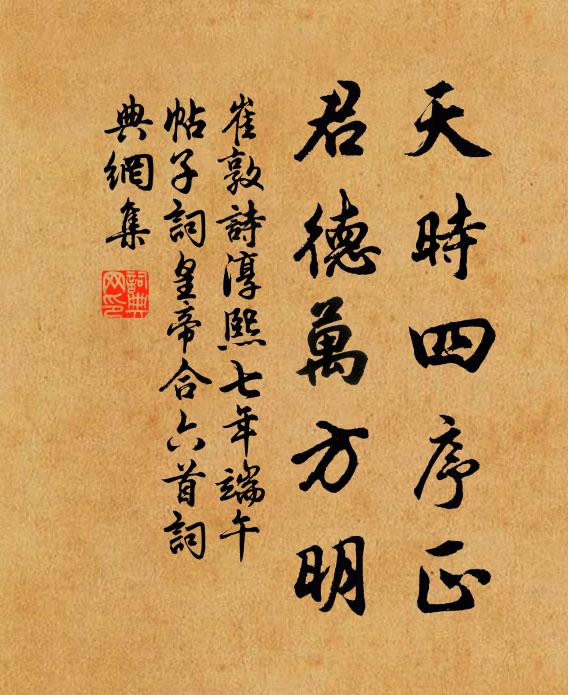 天時四序正
君德萬方明
崔敦詩淳熙七年端午
帖子詞皇帝合六首詞
典網集
詞典
网印